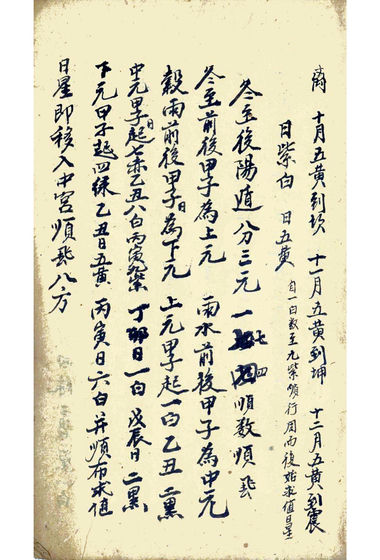 离 十月五黄到坎 十一月五黄到坤 十二月五黄到震
日紫白 日五黄 自一白数至九紫順行周而復始求值日星
冬至後陽遁分三元 一七四順数順飛
冬至前後甲子為上元 雨水前後甲子為中元
穀雨前後甲子日為下元 上元甲子起一白乙丑二黑
中元甲子日起七赤乙丑八白丙寅九紫 丁卯日一白 戊辰日二黑
下元甲子起四綠乙丑日五黄 丙寅日六白并順布求值
日星即移入中宮順飛八方